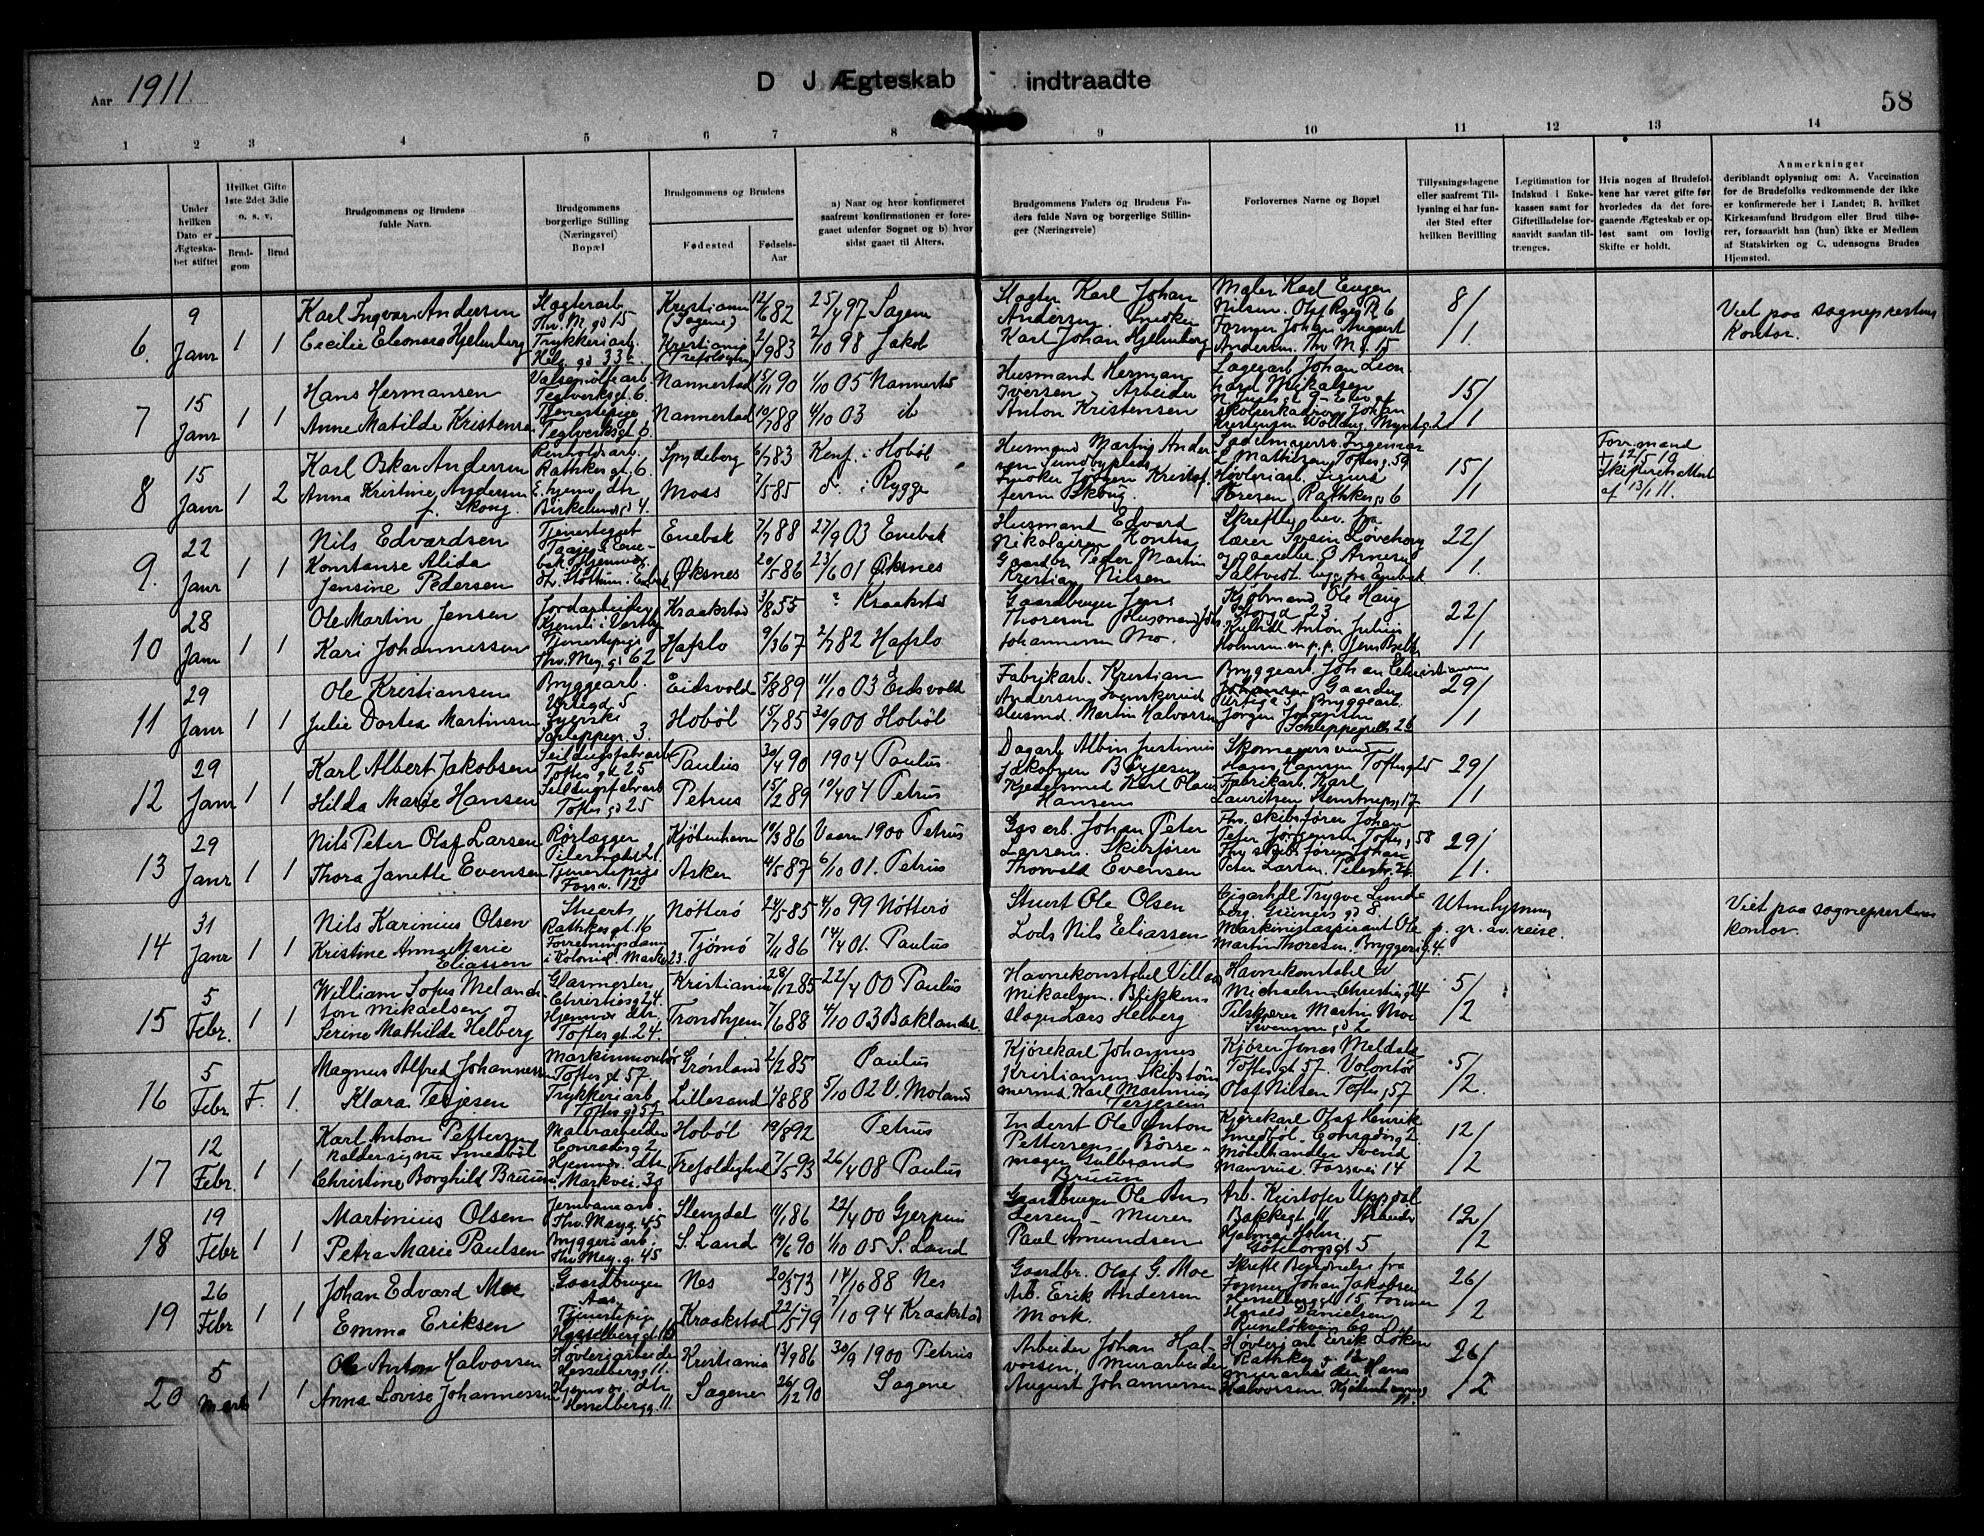 Aar 1911.
D J Ægteskab indtraadte
58
1 2 3 4 5 6 7 8 9 10 11 12 13 14
Under hvilken Dato er Ægteskabet stiftet
Hvilket Gifte 1ste 2det 3die o. s. v.
Brudgom
Brud
Brudgommens og Brudens fulde Navn.
Brudgommens borgerlige Stilling (Næringsvei) Bopæl
Brudgommens og Brudens
Fødested
Fødsels-Aar
a) Naar og hvor konfirmeret saafremt konfirmationen er foregaaet udenfor Sognet og b) hvor sidst gaaet til Alters.
Brudgommens Faders og Brudens Faders fulde Navn og borgerlige Stillinger (Næringsveie)
Forlovernes Navne og Bopæl
Tillysningsdagene eller saafremt Tillysning ei har fundet Sted efter hvilken Bevilling
Legitimation for Indskud i Enkekassen samt for Giftetilladelse forsaavidt saadan tiltrænges.
Hvis nogen af Brudefolkene har været gifte før hvorledes da det foregaaende Ægteskab er opløst samt om lovligt Skifte er holdt.
Anmerkninger
deriblandt oplysning om: A. Vaccination for de Brudefolks vedkommende der ikke er konfirmerede her i Landet; B. hvilket Kirkesamfund Brudgom eller Brud tilhører, forsaavidt han (hun) ikke er Medlem af Statskirken og C. udensogns Brudes Hjemsted.
6. 9 Janr 1 1
Karl Ingvar Andersen
Cecilie Eleonora Hjelmberg
Slagterarb.
Thv. M. gd 15
Trykkeriarb.
Kristiania (Sagene) 12/6 82 25/4 97 Sagene
Kristiania (Trefoldighed) 2/9 83 2/10 98 Jakob
Slagter Karl Johan Andersen. Smed
Karl Johan Hjelmberg
Maler Karl Eugen Nilsen. Olaf Ryes Pl. 6
Former Johan August Andersen. Thv M. g. 15
8/1
Viet paa sogneprestens kontor.
7 15 Janr 1 1
Hans Hermansen
Anne Matilde Kristensen
Valsemøllearb.
Teglverksgt. 6.
Tjenestepige
Teglverksgt. 6
Nannestad 15/11 90 1/10 05 Nannestad
Nannestad 10/7 88 4/10 03 it
Husmand Herman Iversen, Arbeider
Anton Kristensen
Lagerarb. Johan
15/1
8 15 Janr 1 2
Karl Oskar Andersen
Anna Kristine Andersen f. Skoug.
Renholdsarb.
Rathkes gt. 6.
E. hjemv. dtr
Birkelunds gd 4.
Spydeberg 6/7 83 Konf. i Hobøl
Moss 7/5 85 d. i Rygge
Husmand Martin Andersen Sundbyplads
Smeker Jørgen Kristoffersen Skoug.
L. Mathisen, Toftes g. 59
Høvleriarb. Sigurd
Rathkes gd 6
15/1
Forr. mand
+ 12/5 10
Skifteretsattest af 13/1 11.
9. 22 Janr 1 1
Nils Edvardsen
Konstanse Alida
Jensine Pedersen
Enebak 7/7 88 27/9 03 Enebak
Øksnes 20/5 86 23/6 01 Øksnes
Husmand Edvard Nikolaisen
Gaardbr. Peder Martin
Kristian Nilsen
22/1.
10 28 Janr 1 1
Ole Martin Jensen
Kari Johannessen
Jordarbeider
Tjenestepige
Thv. Mey. gd 62
Kraakstad 3/8 55 ? Kraakstad
Hafslo 9/3 67 2/7 82 Hafslo
Gaardbruger Jens Thoresen
Johannessen Mo.
Kjøbmand Ole Haug
Storgd 23
22/1
11 29 Janr 1 1
Ole Kristiansen
Julie Dortea Martinsen
Bryggearb.
Urtegd 5
Syerske
Schleppegr. 3.
Eidsvold 5/8 89 11/10 03 Eidsvold
Hobøl 15/7 85 30/9 00 Hobøl
Fabrikarb. Kristian Andersen
Husmd. Martin Halvorsen
Bryggearb. Johan Christiansen
Bryggearb.
Jørgen Johansen
Schleppegrells 26
29/1
12 29 Janr 1 1
Karl Albert Jakobsen
Hilda Marie Hansen
Seildugsfabarb
Toftes gt 25
Seildugsfabarb
Toftes gd 25
Paulus 30/4 90 1904 Paulus
Petrus 15/2 89 10/4 04 Petrus
Dagarb. Albin Justinius Jakobsen
Kjedelsmed Karl Olaus Hansen
Skomagersvend
Hans Hansen Toftesgt 25
Fabrikarb. Karl
Lauritsen Stenstrups g. 17.
29/1
13 29 Janr 1 1
Nils Peter Olaf Larsen
Thora Janette Evensen
Rørlægger
Pilestredet 21.
Tjenestepige
Kjøbenhavn 10/3 86 Vaaren 1900 Petrus
Asker 4/5 87 6/10 01. Petrus
Gas arb. Johan Peter Larsen. Skibsfører
Thorvald Evensen
Fhv. skibsfører Johan
Peter Jørgensen Toftes g. 58
Fhv skibsfører Johan
Peter Larsen
29/1.
14 31 Janr 1 1
Nils Karinius Olsen
Kristine Anna Marie Eliassen
Stuert
Rathkes gt. 16
Forretningsdame
i Kolonial. Markv. 23.
Nøtterø 24/5 85 4/10 99 Nøtterø
Tjømø 7/11 86 14/4 01. Paulus
Stuert Ole Olsen
Lods Nils Eliassen
Cigarhdl Trygve Lundeberg. Grüners gd 8.
Maskinistaspirant Ole
Martin Thoresen. Bryggerig. 4.
Uten lysning p. gr. av reise.
Viet paa sogneprestens kontor.
15 5 Febr. 1 1
William Sofus Melandton Mikaelsen
Serine Mathilde Helberg
Glasmester
Christiesgt 24.
Hjemv. dtr.
Toftes gt. 24.
Kristiania 28/12 85 22/4 00 Paulus
Trondhjem 7/6 88 4/10 03 Baklandet.
Havnekonstabel Villas Mikaelsen. Blikkenslager Lars Helberg
Havnekonstabel W Michaelsen, Christiesgt 24
Martin Moe
5/2
16 5 Febr. F. 1.
Magnus Alfred Johannessen
Klara Terjesen
Maskinmontør
Toftes gt 57
Trykkeriarb
Toftes gd 57
Grønland 2/2 85 Paulus
Lillesand 4/8 88 5/10 02 V. Moland
Kjørekarl Johannes Kristiansen, Skibstømmermd. Karl Martinius Terjesen
Kjører Jonas
Toftes gt 57. Volontør
Olaf Nilsen Toftes g. 57
5/2.
17 12 Febr. 1 1
Karl Anton Pettersen kalder sig nu Smedbøl
Christine Borghild Bruun
Malerarbeider
Conradis g 2
Hjemv. dtr
Markvei. 30
Hobøl 19/8 92 Petrus
Trefoldighed 7/5 93 26/4 08 Paulus
Inderst Ole Anton Pettersen, Børsemager Gulbrand Bruun
Kjørekarl Olaf Henrik
Smedbøl. Conradis g. 2.
Møbelhandler Svend
Mansrud. Fossvei 14
12/2
18 19 Febr 1 1
Martinius Olsen
Petra Marie Paulsen
Jernbanearb.
Thv. Meyg. 45
Bryggeriarb.
Thv Mey. g. 45
Slemdal 11/1 86 22/4 00 Gjerpen
S. Land 19/6 90 1/10 05 S. Land
Gaardbruger Ole Andersen – Murer
Paul Amundsen
Arb. Kristofer Uppdal
Bakkegt 11 Arbeider
Hjalmar Holm.
Göteborgsgt 5
19/2
19 26 Febr 1 1
Johan Edvard Moe
Emma Eriksen
Gaardbruger
Aas
Tjenestepig
Hasselbergt 15
Nes 20/3 73 14/10 88 Nes
Kraakstad 22/5 79 7/10 94 Kraakstad
Gaardbr. Olaf G. Moe
Arb. Erik Andersen Mork.
Skriftl Bevidnelse fra
Former Johan Jakobsen
Hesselbergt 15 Former
Harald Danielsen
Runeløkvein 60
26/2
20 5 Marts 1 1
Ole Anton Halvorsen
Anna Lovise Johannessen
Høvleriarbeider
Hesselbergs g 11.
Hjemv. dtr
Hesselbergg. 11.
Kristiania 13/9 86 30/9 1900 Petrus
Sagene 26/12 90 Sagene
Arbeider Johan Halvorsen, Murarbeider
August Johannessen
Høvleriarb Eirik Løken
Rathkes g. 12
murarbeider Hans
Halvorsen. Kjøbenhavnsg 11.
26/2